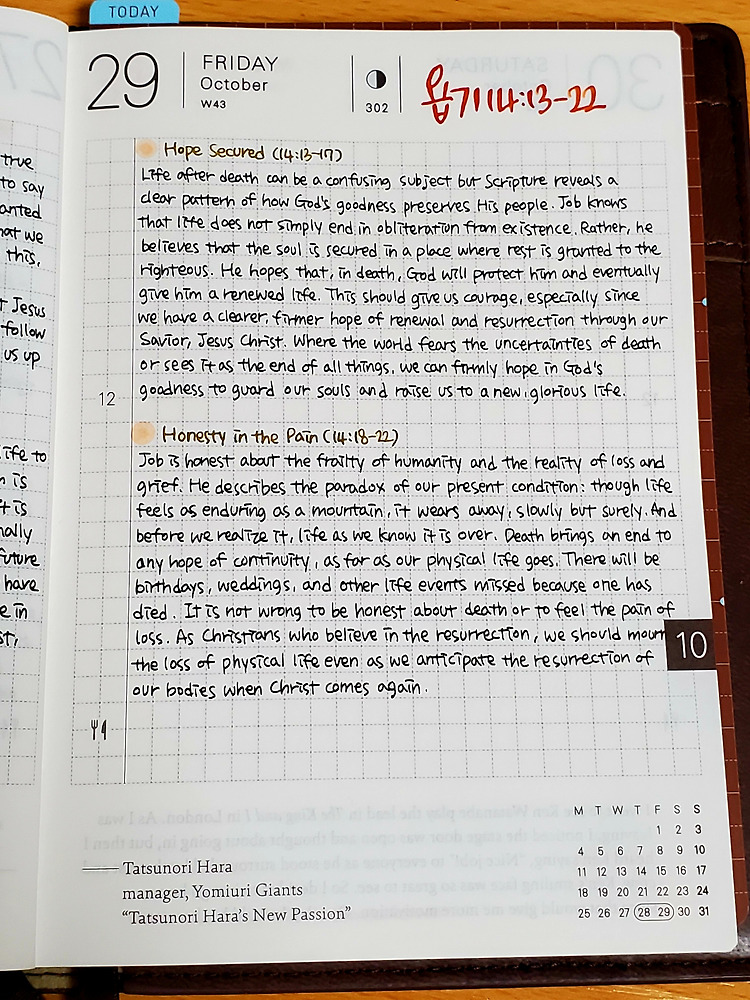 TODAY
29
FRIDAY
October
W43
302
욥기 14:13-22
Hope Secured (14:13-17)
Life after death can be a confusing subject but Scripture reveals a
clear pattern of how God's goodness preserves His people. Job knows
that life does not simply end in obliteration from existence. Rather, he
believes that the soul is secured in a place where rest is granted to the
righteous. He hopes that, in death, God will protect him and eventually
give him a renewed life. This should give us courage, especially since
we have a clearer, firmer hope of renewal and resurrection through our
Savior, Jesus Christ. Where the world fears the uncertainties of death
or sees it as the end of all things, we can firmly hope in God's
goodness to guard our souls and raise us to a new, glorious life.
12
Honesty in the Pain (14:18-22)
Job is honest about the frailty of humanity and the reality of loss and
grief. He describes the paradox of our present condition: though life
feels as enduring as a mountain, it wears away, slowly but surely. And
before we realize it, life as we know it is over. Death brings an end to
any hope of continuity, as far as our physical life goes. There will be
birthdays, weddings, and other life events missed because one has
died. It is not wrong to be honest about death or to feel the pain of
loss. As Christians who believe in the resurrection, we should mourn
the loss of physical life even as we anticipate the resurrection of
our bodies when Christ comes again.
10
M T W T F S S
1 2 3
4 5 6 7 8 9 10
11 12 13 14 15 16 17
18 19 20 21 22 23 24
25 26 27 28 29 30 31
Tatsunori Hara
manager, Yomiuri Giants
“Tatsunori Hara's New Passion”
true
to say
anted
hat we
this,
t Jesus
follow
us up
life to
n is
t is
nally
future
have
e in
st,